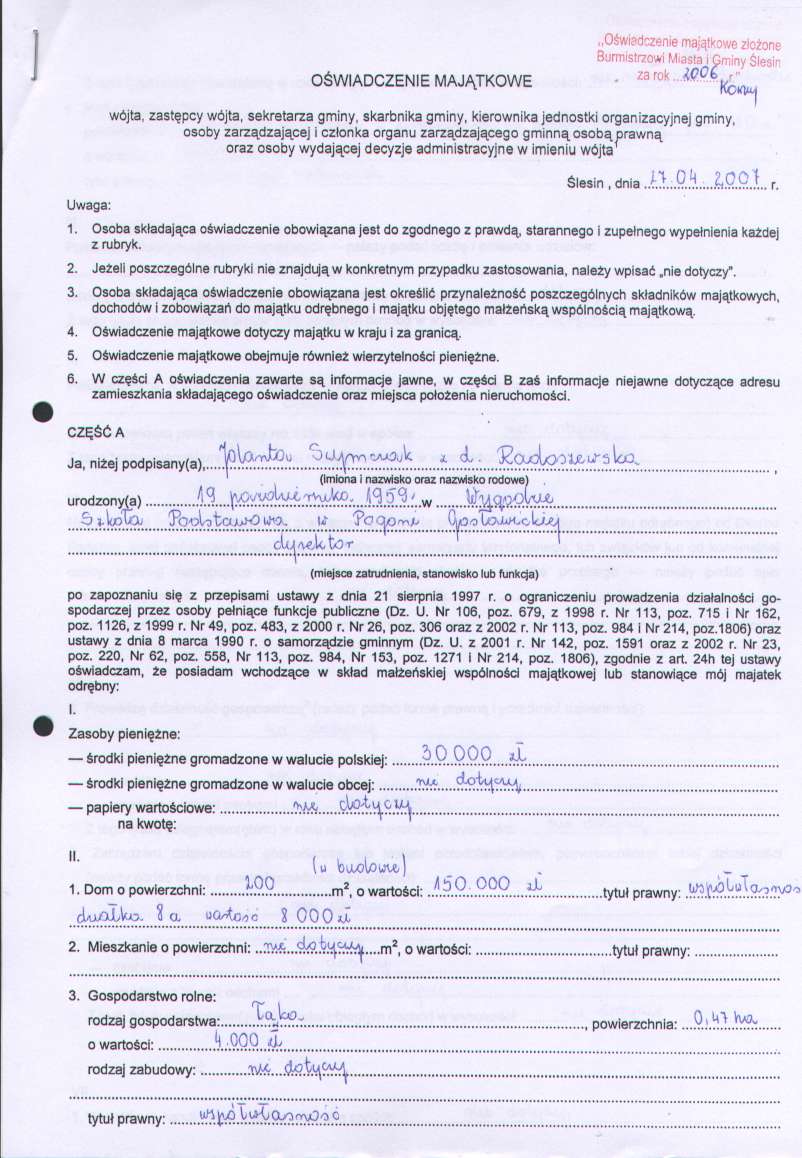 „Oświadczenie majątkowe złożone
Burmistrzowi Miasta i Gminy Ślesin
za rok ...2006...r"
OŚWIADCZENIE MAJĄTKOWE
wójta, zastępcy wójta, sekretarza gminy, skarbnika gminy, kierownika jednostki organizacyjnej gminy,
osoby zarządzającej i członka organu zarządzającego gminną osobą prawną
oraz osoby wydającej decyzje administracyjne w imieniu wójta¹
Ślesin , dnia 17.04.2007 r.
Uwaga:
1. Osoba składająca oświadczenie obowiązana jest do zgodnego z prawdą, starannego i zupełnego wypełnienia każdej
z rubryk.
2. Jeżeli poszczególne rubryki nie znajdują w konkretnym przypadku zastosowania, należy wpisać „nie dotyczy".
3. Osoba składająca oświadczenie obowiązana jest określić przynależność poszczególnych składników majątkowych,
dochodów i zobowiązań do majątku odrębnego i majątku objętego małżeńską wspólnością majątkową.
4. Oświadczenie majątkowe dotyczy majątku w kraju i za granicą.
5. Oświadczenie majątkowe obejmuje również wierzytelności pieniężne.
6. W części A oświadczenia zawarte są informacje jawne, w części B zaś informacje niejawne dotyczące adresu
zamieszkania składającego oświadczenie oraz miejsca położenia nieruchomości.
CZĘŚĆ A
Ja, niżej podpisany(a), Jolanta Szymczak z d. Radoszewska ,
(imiona i nazwisko oraz nazwisko rodowe)
urodzony(a) 19 października 1959 w Wygodzie
Szkoła Podstawowa w Pogoni Gosławickiej
dyrektor
(miejsce zatrudnienia, stanowisko lub funkcja)
po zapoznaniu się z przepisami ustawy z dnia 21 sierpnia 1997 r. o ograniczeniu prowadzenia działalności go-
spodarczej przez osoby pełniące funkcje publiczne (Dz. U. Nr 106, poz. 679, z 1998 r. Nr 113, poz. 715 i Nr 162,
poz. 1126, z 1999 r. Nr 49, poz. 483, z 2000 r. Nr 26, poz. 306 oraz z 2002 r. Nr 113, poz. 984 i Nr 214, poz.1806) oraz
ustawy z dnia 8 marca 1990 r. o samorządzie gminnym (Dz. U. z 2001 r. Nr 142, poz. 1591 oraz z 2002 r. Nr 23,
poz. 220, Nr 62, poz. 558, Nr 113, poz. 984, Nr 153, poz. 1271 i Nr 214, poz. 1806), zgodnie z art. 24h tej ustawy
oświadczam, że posiadam wchodzące w skład małżeńskiej wspólności majątkowej lub stanowiące mój majatek
odrębny:
I.
Zasoby pieniężne:
— środki pieniężne gromadzone w walucie polskiej: 30 000 zł
— środki pieniężne gromadzone w walucie obcej: nie dotyczy
— papiery wartościowe: nie dotyczy
na kwotę:
II.
(w budowie)
1. Dom o powierzchni: 200 m², o wartości: 150.000 zł tytuł prawny: współwłasność
działka 8 a wartość 8 000 zł
2. Mieszkanie o powierzchni: nie dotyczy m², o wartości: tytuł prawny:
3. Gospodarstwo rolne:
rodzaj gospodarstwa: Łąka , powierzchnia: 0,47 ha
o wartości: 4.000 zł
rodzaj zabudowy: nie dotyczy
tytuł prawny: współwłasność